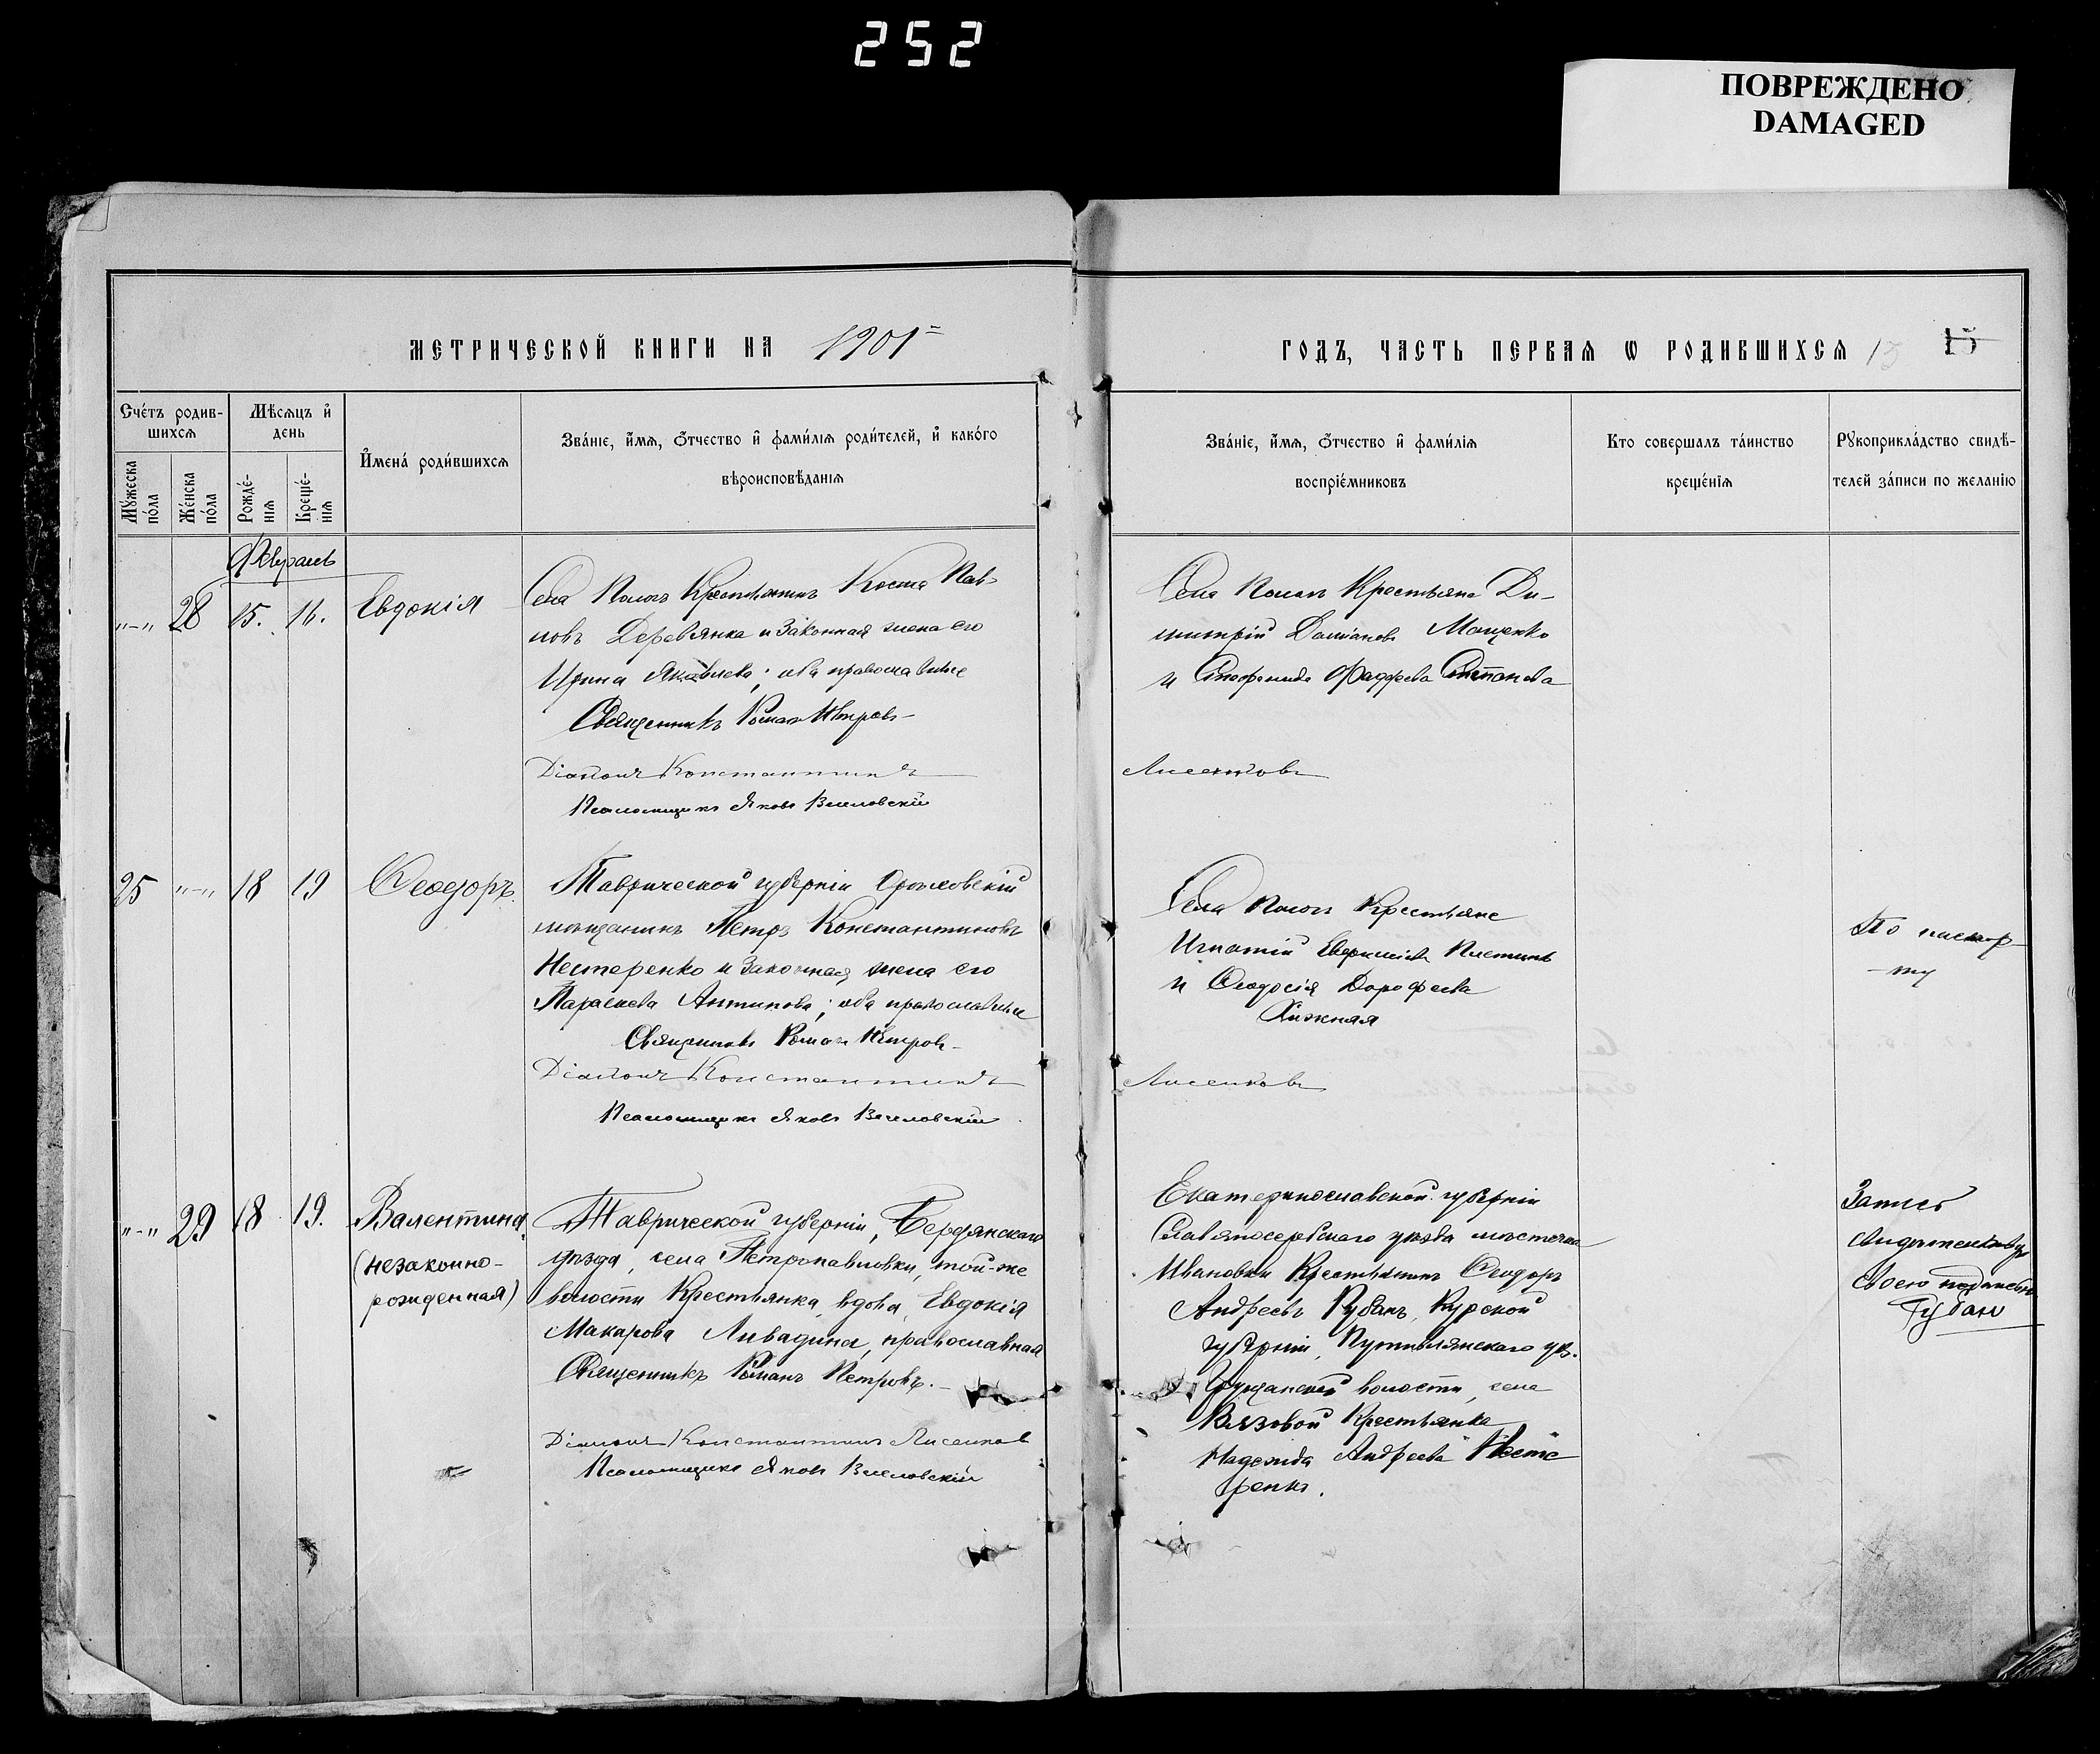 252
ПОВРЕЖДЕНО
DAMAGED
МЕТРИЧЕСКОЙ КНИГИ НА 1901
ГОДЪ, ЧАСТЬ ПЕРВАЯ Ѡ РОДИВШИХСЯ 15 15
Счетъ родив-
шихся
Мѣсяцъ и
день
Мужеска
пола
Женска
пола
Рожде-
нія
Креще-
нія
Имена родившихся
Званіе, имя, отчество и фамилія родителей, и какого
вѣроисповѣданія
Званіе, имя, отчество и фамилія
воспріемниковъ
Кто совершалъ таинство
крещенія
Рукоприкладство свидѣ-
телей записи по желанію
Февраль
"-" 28 15. 16. Евдокія
Села Пологъ Крестьянинъ Косма Пав-
ловъ Деревянка и законная жена его
Ирина Яковлева; оба православные
Священникъ Романъ Петровъ
Діаконъ Константинъ
Псаломщикъ Яковъ Веселовскій
Села Пологъ Крестьяне Ди-
митрій Даміановъ Мощенко
и Фаддеева Степанова
Лисенковъ
25 "-" 18 19 Ѳеодоръ.
Таврической губерніи Орѣховскій
мѣщанинъ Петръ Константиновъ
Нестеренко и законная жена его
Параскева Антипова; оба православные
Священникъ Романъ Петровъ
Діаконъ Константинъ
Псаломщикъ Яковъ Веселовскій
Села Пологъ Крестьяне
Игнатій
и Ѳеодосія Дорофеева
Хижная
Лисенковъ
По паспор-
ту
"-" 29 18 19. Валентина
(незаконно-
рожденная)
Таврической губерніи, Бердянскаго
уѣзда, села Петропавловки, той-же
волости Крестьянка, вдова, Евдокія
Макарова Ливадина, православная
Священникъ Романъ Петровъ.
Діаконъ Константинъ Лисенков
Псаломщикъ Яковъ Веселовскій
Екатеринославской губерніи
Славяносербскаго уѣзда мѣстечка
Ивановки Крестьянинъ Ѳеодоръ
Андреевъ Рубанъ, Курской
губерніи, Путивлянскаго уѣз.
волости, села
Вязовой Крестьянка
Надежда Андреева Несте
ренко.
Запись
свидетельствую
своею подписью